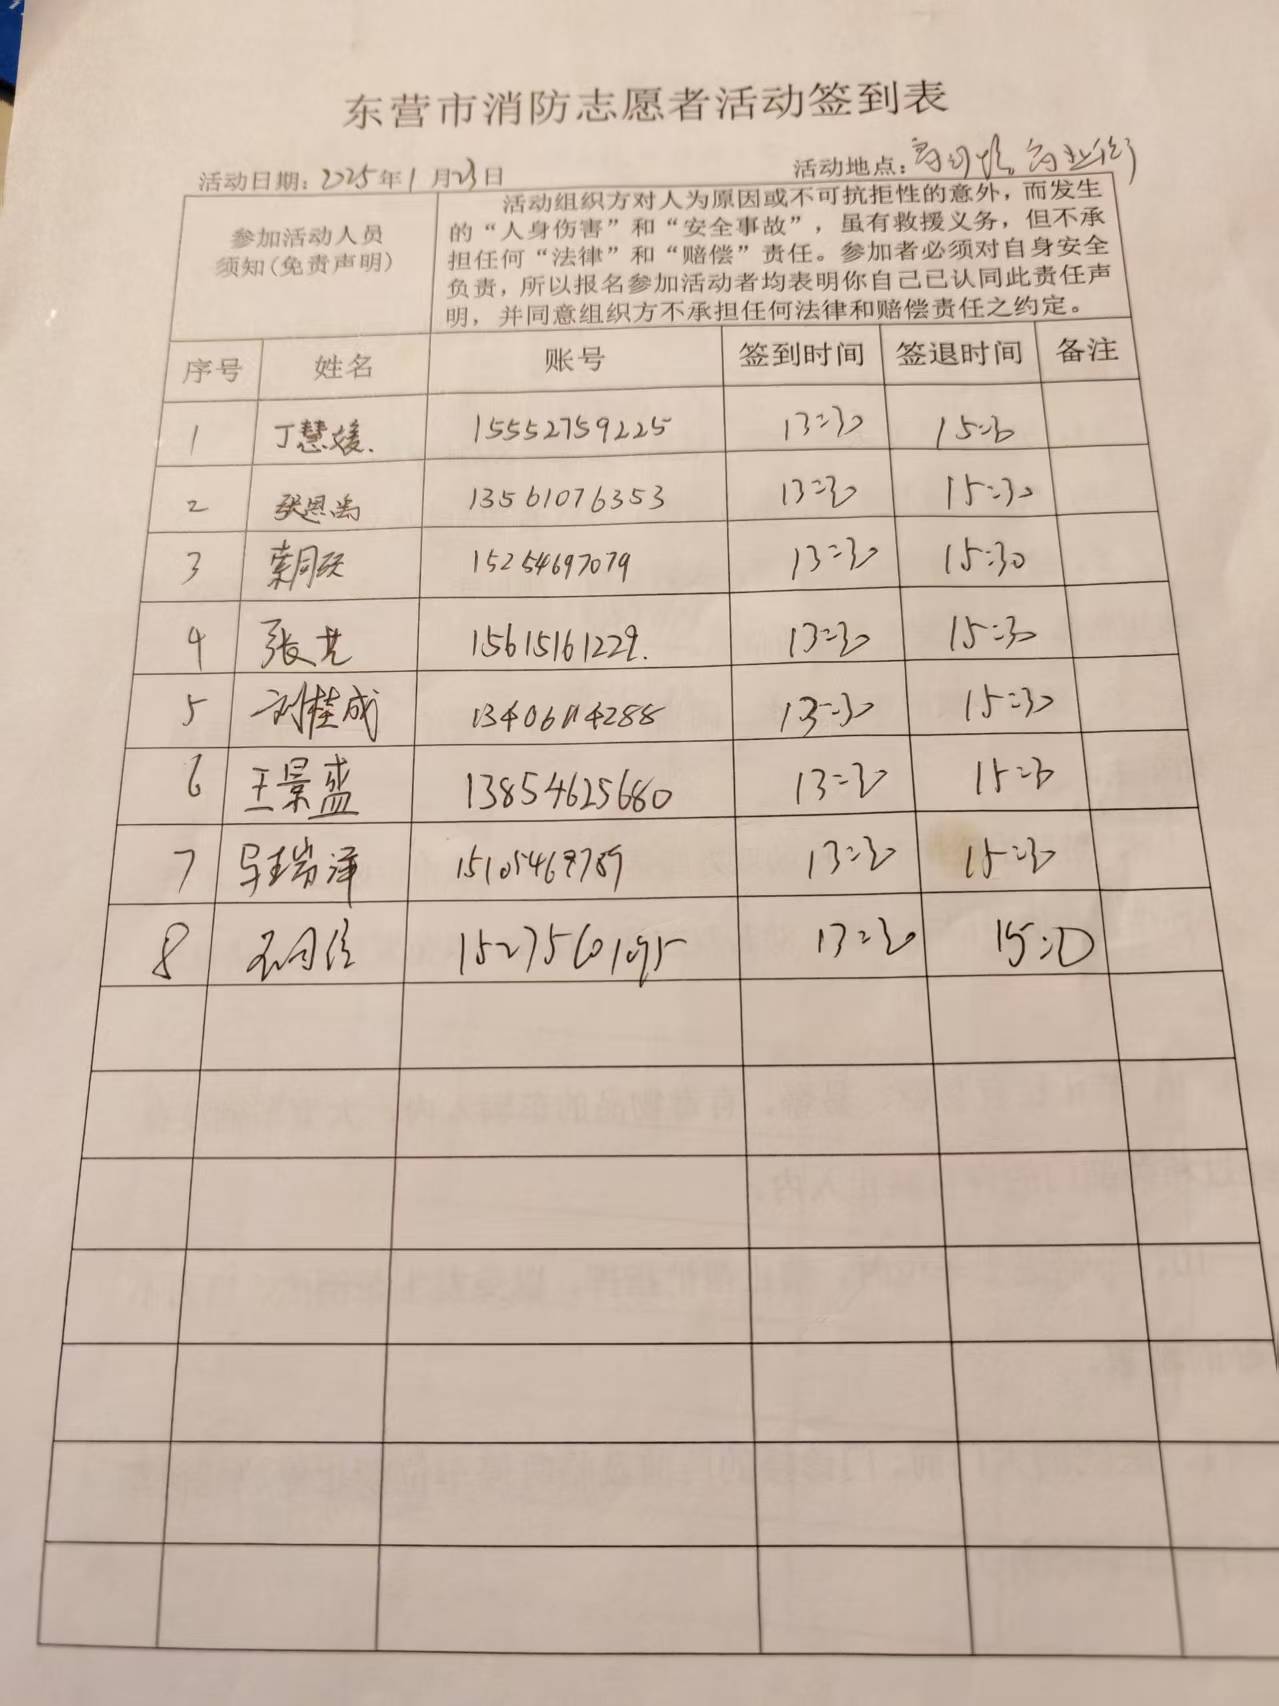 东营市消防志愿者活动签到表
活动日期：2025年1月23日 活动地点：
参加活动人员
须知(免责声明)
活动组织方对人为原因或不可抗拒性的意外，而发生
的“人身伤害”和“安全事故”，虽有救援义务，但不承
担任何“法律”和“赔偿”责任。参加者必须对自身安全
负责，所以报名参加活动者均表明你自己已认同此责任声
明，并同意组织方不承担任何法律和赔偿责任之约定。
序号 姓名 账号 签到时间 签退时间 备注
1 丁慧媛. 15552759225 13:30 15:30
2 张恩尚 13561076353 13:30 15:30
3 15254697079 13:30 15:30
4 张艺 15615161229. 13:30 15:30
5 刘桂成 13406114288 13:30 15:30
6 王景盛 13854625680 13:30 15:30
7 瑞泽 13:30 15:30
8 13:30 15:30